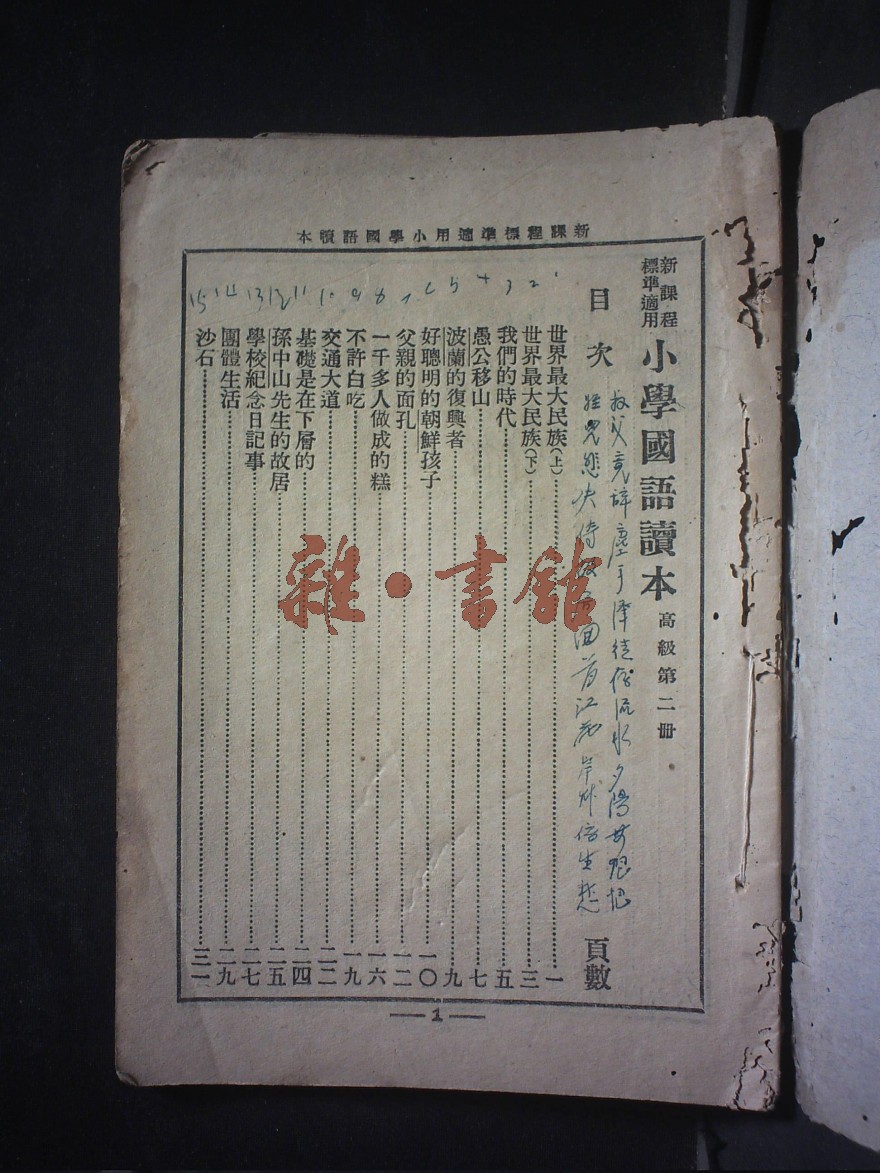 新課程標準適用小學國語讀本
新課程標準適用
小學國語讀本 高級第二冊
竟辭塵手澤徒 流水夕陽
回首江花岸
目次 頁數
世界最大民族(上)……一
世界最大民族(下)……三
我們的時代……五
愚公移山……七
波蘭的復興者……九
好聰明的朝鮮孩子……一〇
父親的面孔……一二
一千多人做成的糕……一六
不許白吃……一九
交通大道……二二
基礎是在下層的……二四
孫中山先生的故居……二五
學校紀念日記事……二七
團體生活……二九
沙石……三一
1
雜·書館